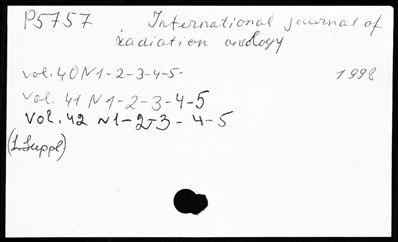 P5757 International journal of
radiation oncology
vol. 40 N 1-2-3-4-5- 1998
vol. 41 N 1-2-3-4-5
vol. 42 N 1-2-3-4-5
(1 Suppl)